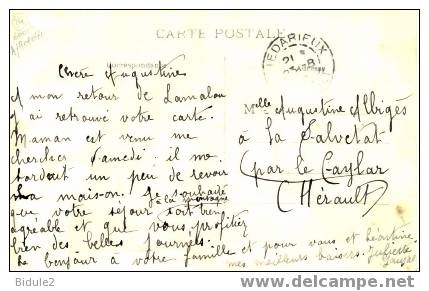 CARTE POSTALE
Correspondance
BEDARIEUX
21
8
Chère Augustine
A mon retour de Lamalou
j'ai retrouvé votre carte.
Maman est venu me
chercher Samedi : il me
tardait un peu de revoir
la maison. Je souhaite
que votre séjour à la montagne soit bien
agréable et que vous profitiez
bien des belles journées.
Le bonjour à votre famille et pour vous et Léontine
mes meilleurs baisers. Juliette
Melle Augustine Albigès
à La Salvetat
(par le Caylar
(Hérault)
Bidule2
delcampe.net